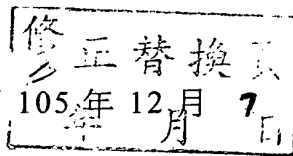 修正替換頁
105年12月7日